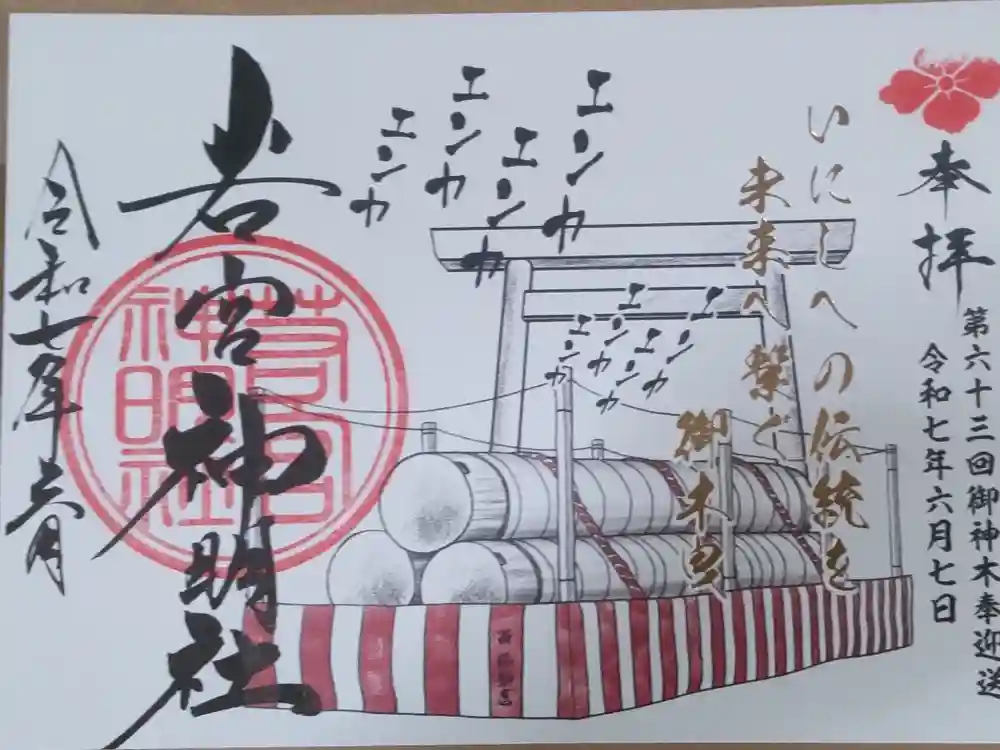 奉拝
第六十三回御神木奉迎送
令和七年六月七日
いにしへの伝統を
未来へ繋ぐ
御木曳
エンカ
エンカ
エンカ
エンカ
エンカ
エンカ
エンカ
エンカ
若宮神明社
若宮
神明社
令和七年六月